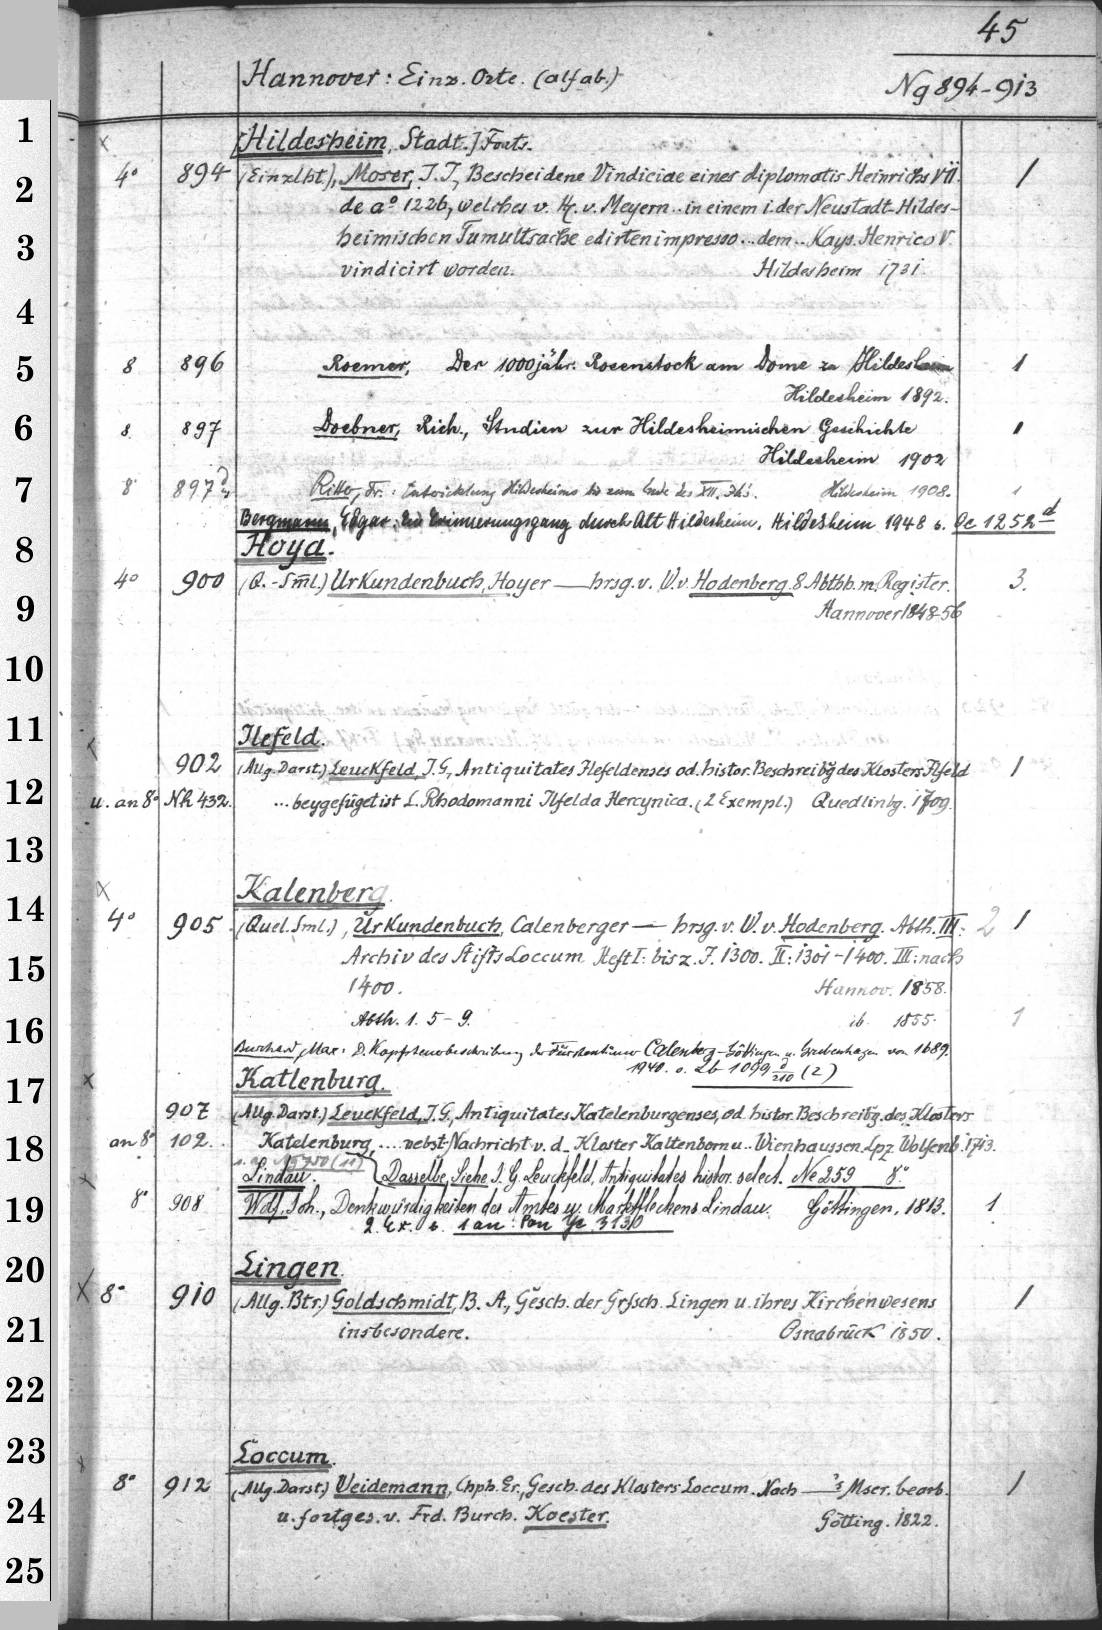 45
Hannover: Einz. Orte. (alfab.) Ng 894-913
1
[Hildesheim, Stadt.] Forts.
2 4° 894 (Einzlht), Moser, J. J., Bescheidene Vindiciae eines diplomatis Heinrichs VII. 1
de a° 1226, welches v. H. v. Meyern .. in einem i. der Neustadt-Hildes-
3 heimischen Tumultsache edirten impresso ... dem .. Kays. Henrico V.
vindicirt worden. Hildesheim 1731.
4
5 8 896 Roemer, Der 1000jähr. Rosenstock am Dome zu Hildesheim 1
Hildesheim 1892.
6 8. 897 Doebner, Rich., Studien zur Hildesheimischen Geschichte 1
Hildesheim 1902
7 8° 897 Fr.: Entwicklung Hildesheims bis zum Ende des XII. Jhs. Hildesheim 1908. 1
Bergmann, Edgar: Ein Erinnerungsgang durch Alt Hildesheim. Hildesheim 1948 s. Oe 1252 d
8 Hoya.
4° 900 (Q.-Sml.) Urkundenbuch, Hoyer — hrsg. v. W. v. Hodenberg. 8 Abthh. m. Register. 3.
9 Hannover 1848-56
10
11 Ilefeld.
902 (Allg. Darst.) Leuckfeld, J. G., Antiquitates Ilefeldenses od. histor. Beschreibg des Klosters Ilfeld 1
12 u. an 8° Nh 432. ... beygefüget ist L. Rhodomanni Ilfelda Hercynica. (2 Exempl.) Quedlinbg. 1709.
13
Kalenberg.
14 4° 905 (Quel. Sml.), Urkundenbuch, Calenberger — hrsg. v. W. v. Hodenberg. Abth. III: 2 1
15 Archiv des Stifts Loccum Heft I: bis z. J. 1300. II: 1301-1400. III: nach
1400. Hannov. 1858.
16 Abth. 1. 5-9. ib. 1855. 1
Max: D. Kopfsteuerbeschreibung der Fürstentümer Calenberg-Göttingen u. Grubenhagen von 1689.
1940. s. Lb 1099 (2)
17 Katlenburg.
907 (Allg. Darst.) Leuckfeld, J. G., Antiquitates Katelenburgenses, od. histor. Beschreibg. des Klosters
18 an 8° 102. Katelenburg, .... nebst Nachricht v. d. Kloster Kaltenborn u. Wienhaussen. Lpz. Wolfenb. 1713.
Lindau. Dasselbe, Siehe J. G. Leuckfeld, Antiquitates histor. select. Ne 259 8°
19 8° 908 Wolf, Joh., Denkwürdigkeiten des Amtes u. Marktfleckens Lindau. Göttingen, 1813. 1
2. Ex. s. 1 an: Ye 3130
20 Lingen.
8° 910 (Allg. Btr.) Goldschmidt, B. A., Gesch. der Grfsch. Lingen u. ihres Kirchenwesens 1
21 insbesondere. Osnabrück 1850.
22
23 Loccum.
8° 912 (Allg. Darst.) Weidemann, Chph. Er., Gesch. des Klosters Loccum. Nach — 's Mscr. bearb. 1
24 u. fortges. v. Frd. Burch. Koester. Götting. 1822.
25